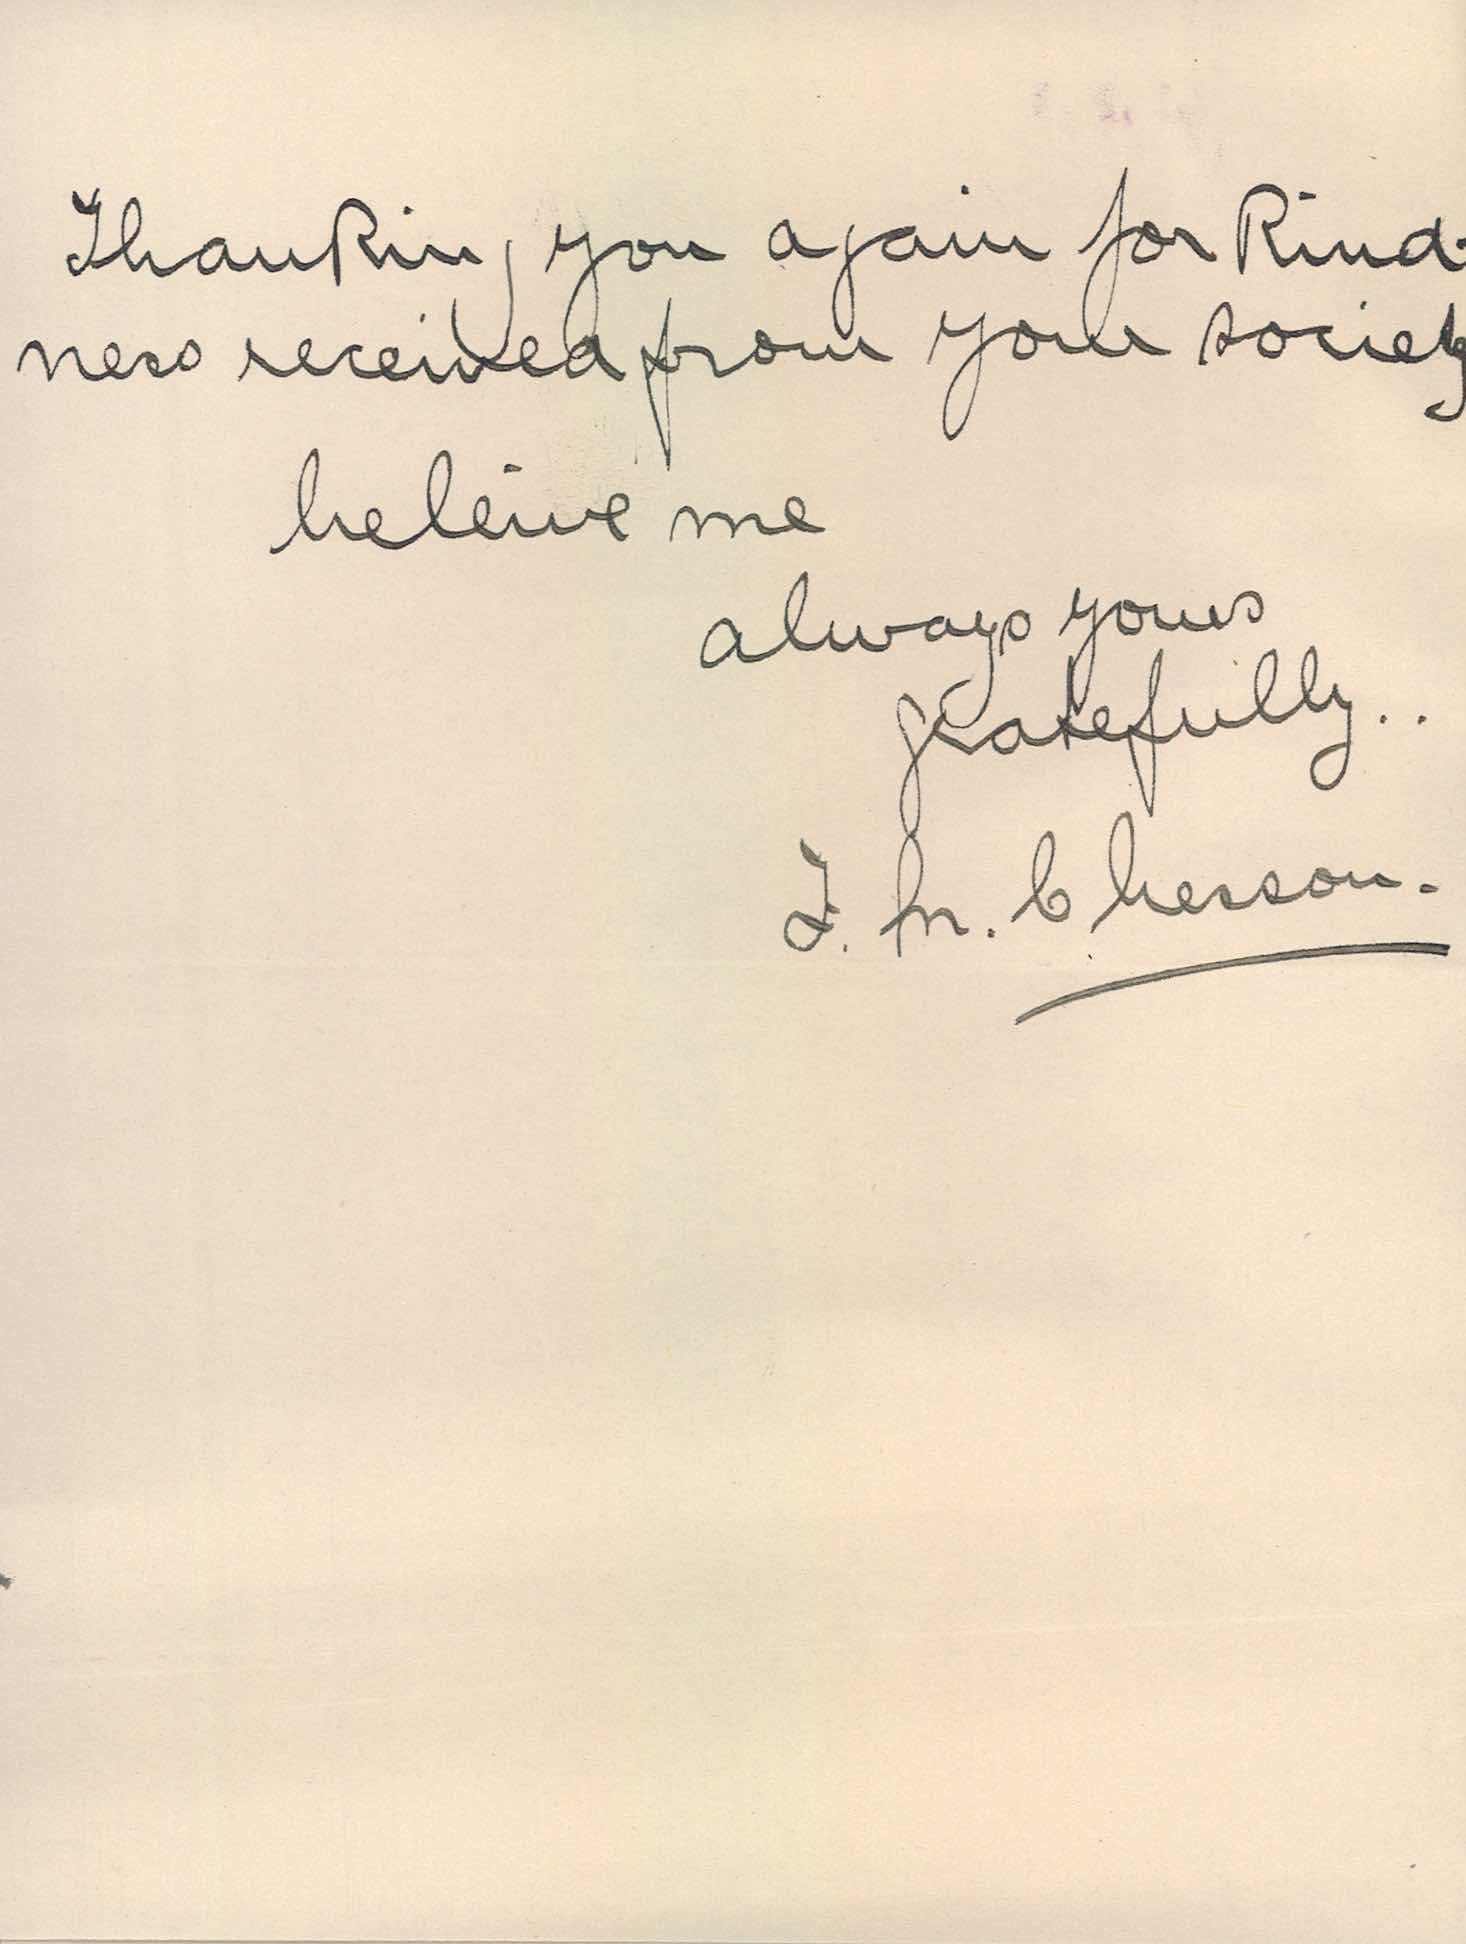 Thanking you again for kind-
ness received from your society
beleive me
always yours
gratefully..
F. M. Chesson.